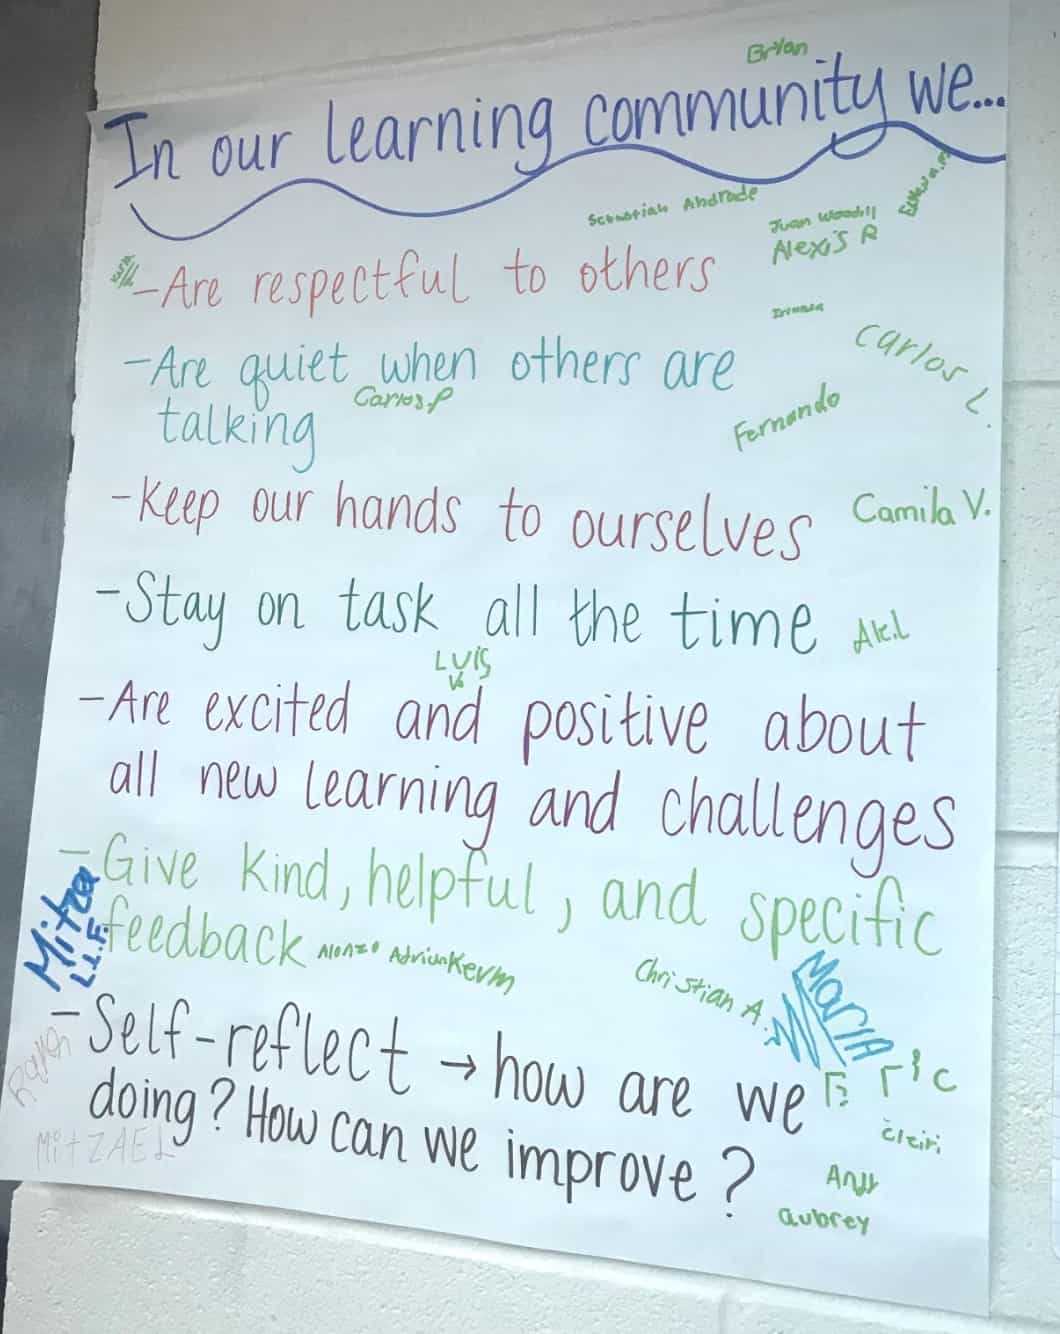 Bryan
In our learning community we...
Sebastian Andrade
Juan
Alexis R
-Are respectful to others
Carlos L.
-Are quiet when others are
Carlos.P
Fernando
talking
-Keep our hands to ourselves
Camila V.
-Stay on task all the time
Luis
-Are excited and positive about
all new learning and challenges
-Give kind, helpful, and specific
Mitzel
L.L.F.
feedback
Alonzo Adrian Kevin
Christian A.
Maria
-Self-reflect → how are we
Eric
doing? How can we improve?
MitZAEL
aubrey